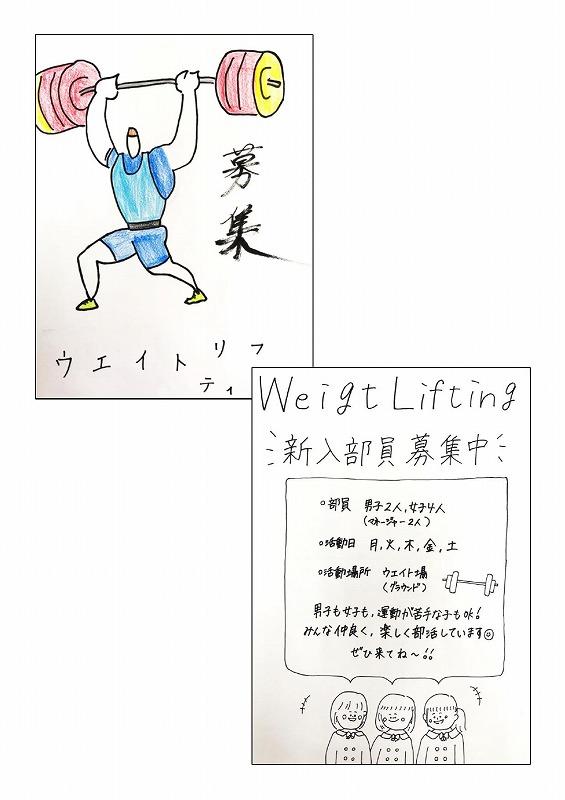 募集
ウエイトリフ
ティ
Weigt Lifting
新入部員募集中
○部員 男子2人,女子4人
(マネージャー2人)
○活動日 月,火,木,金,土
○活動場所 ウエイト場
(グラウンド)
男子も女子も、運動が苦手な子もOK!
みんな仲良く、楽しく部活しています☺
ぜひ来てね〜!!